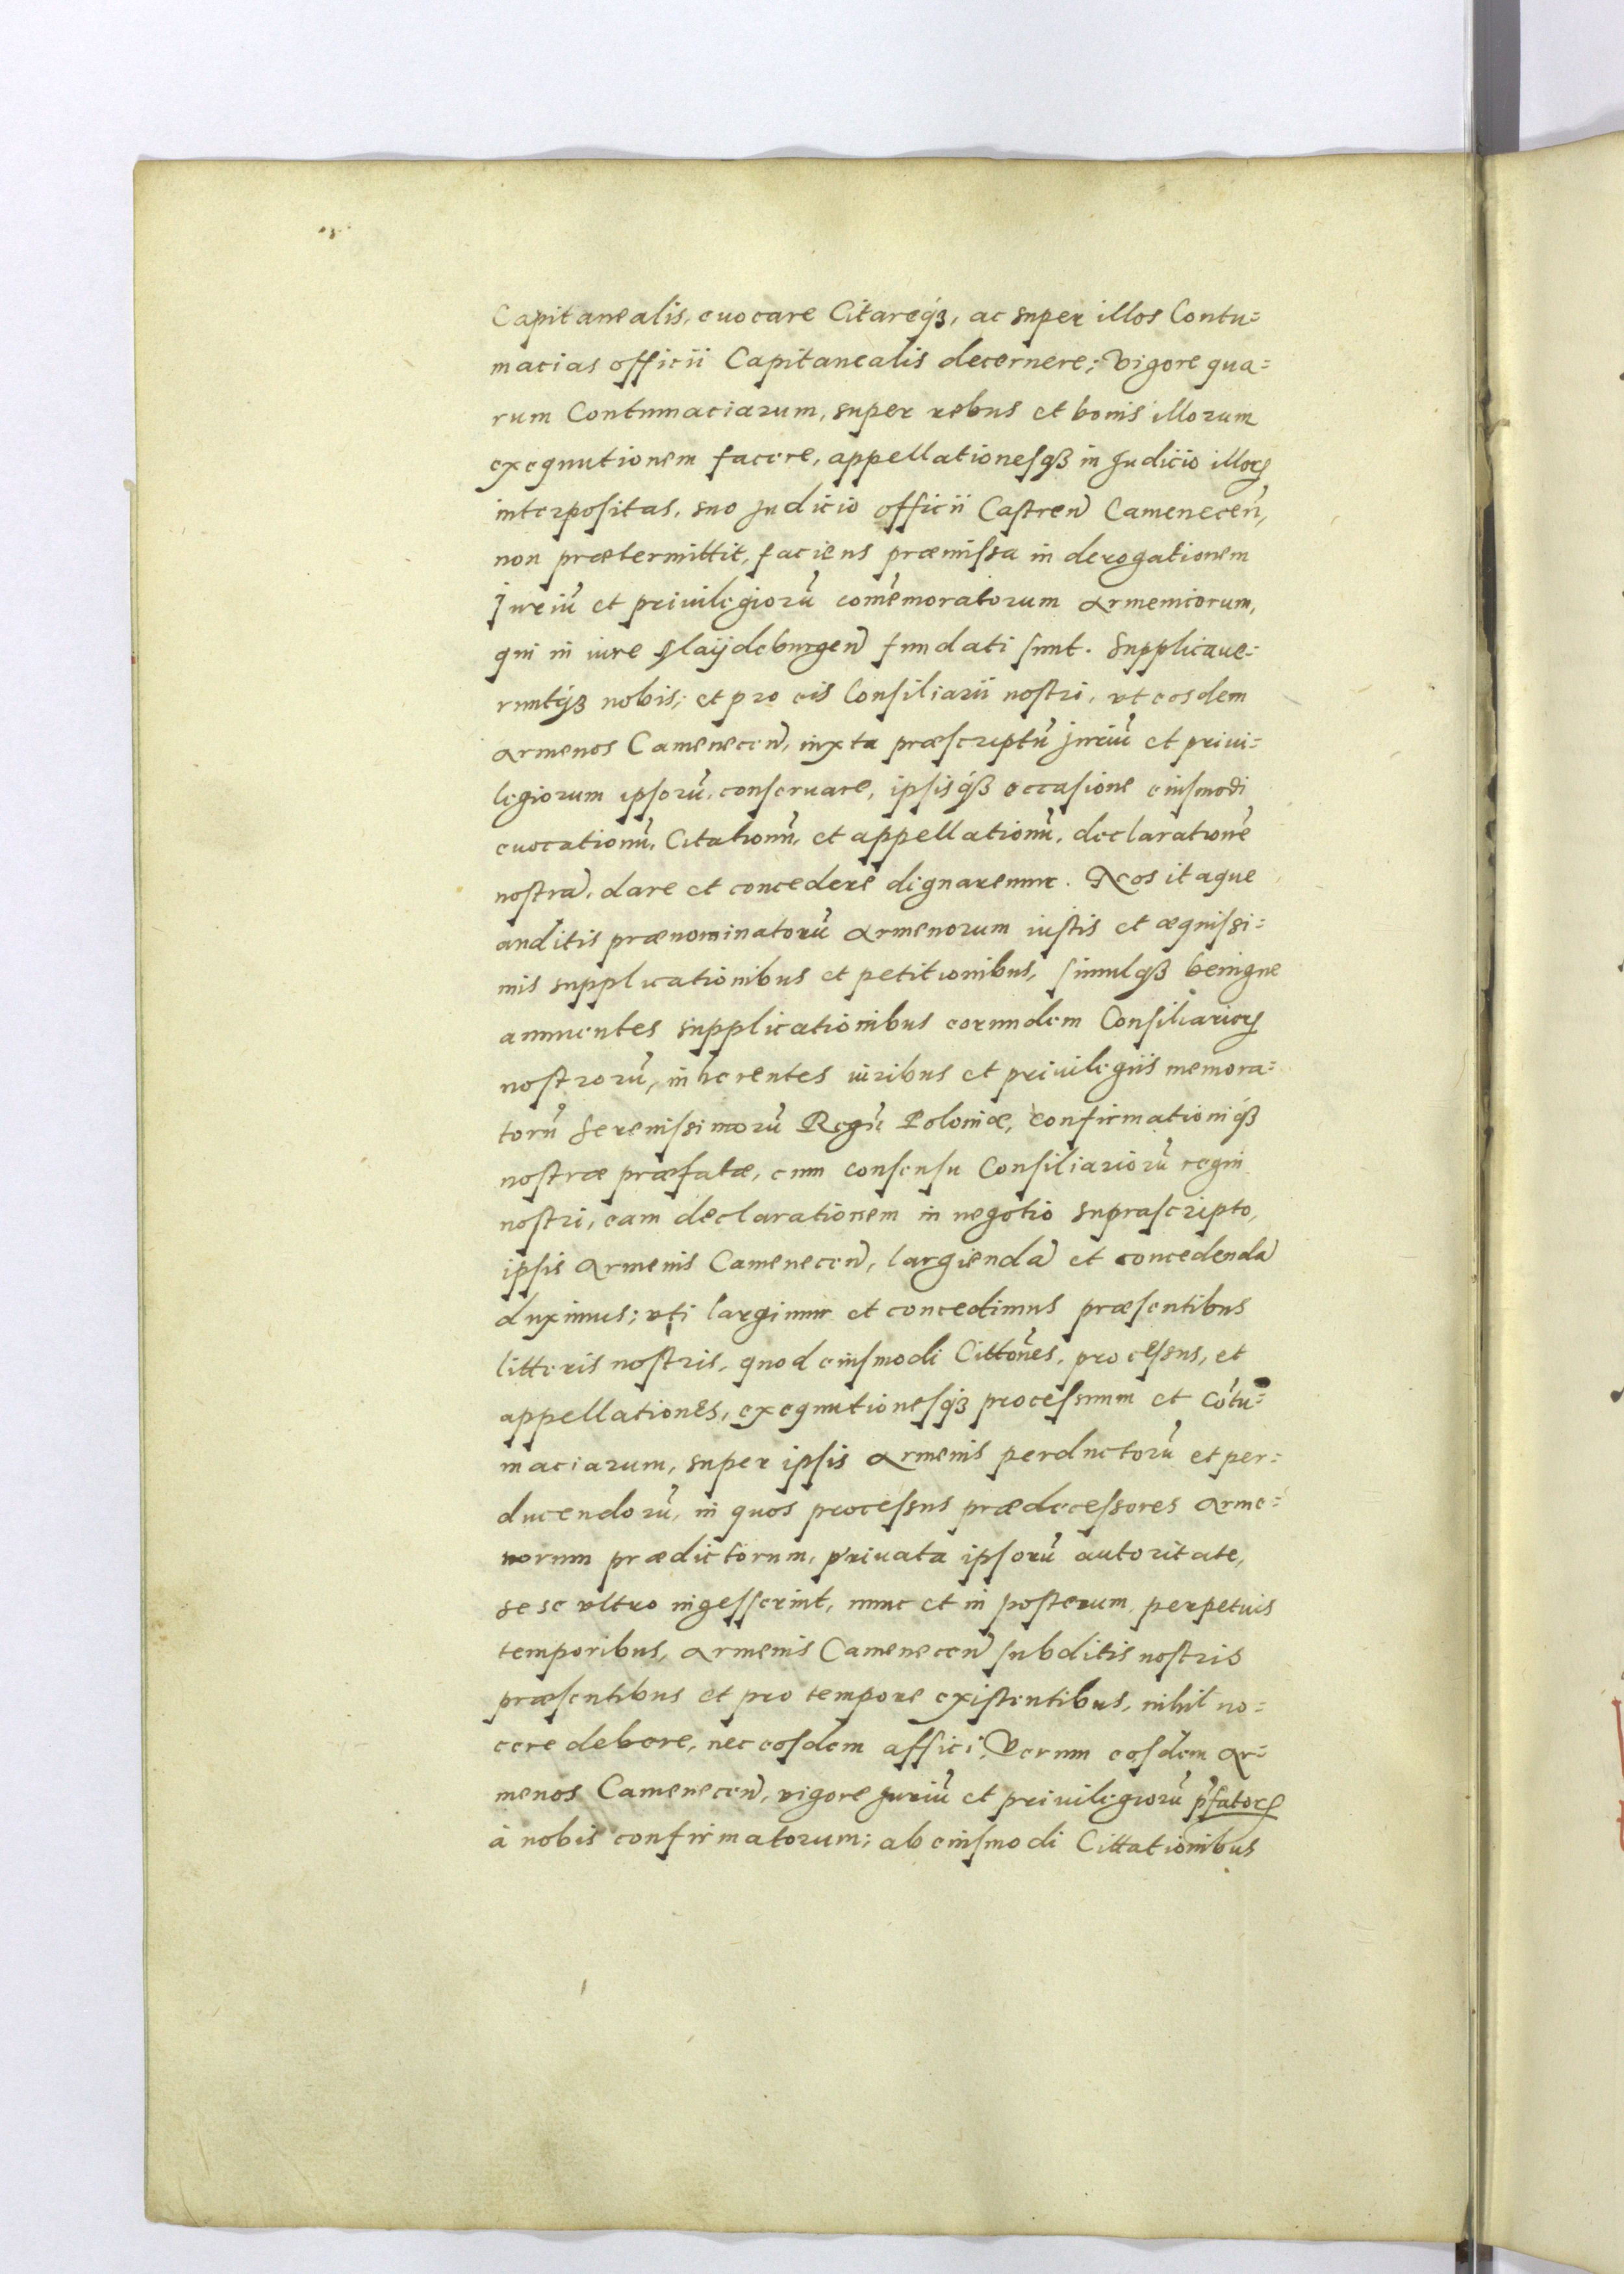 Capitanealis, euocare Citareq́ꝫ, ac super illos Contu=
macias officii Capitanealis decernere; Vigore qua=
rum Contumaciarum, super rebus et bonis illorum
exequutionem facere, appellationesqꝫ in Judicio illoꝝ
interpositas, suo Judicio officii Castreñ Cameneceñ,
non prætermittit, faciens præmissa in derogationem
Juriũ et priuilegiorũ com̃emoratorum Armenicorum,
qui in iure Maijdeburgeñ fundati sunt. Supplicaue=
runtq́ꝫ nobis; et pro eis Consiliarii nostri, vt eosdem
Armenos Cameneceñ, iuxta præscriptũ juriũ et priui=
legiorum ipsorũ, conseruare, ipsisq́ꝫ occasione eiusmodi
euocationũ, Citationũ, et appellationũ, declarationẽ
nostrã, dare et concedere dignaremur. Nos itaque
auditis prænominatorũ Armenorum iustis et æquissi=
mis supplicationibus et petitionibus, simulqꝫ benigne
annuentes supplicationibus eorundem Consiliarioꝝ
nostrorũ, inhærentes iuribus et priuilegiis memora=
torũ Serenissimorũ Regũ Poloniæ, confirmationiq́ꝫ
nostræ præfatæ, cum consensu Consiliariorũ regni
nostri, eam declarationem in negotio suprascripto,
ipsis Armenis Cameneceñ, largiendã et concedendã
duximus; vti largimur et concedimus præsentibus
litteris nostris, quod eiusmodi Cittões, processus, et
appellationes, exequutionesq́ꝫ processuum et Cõtu=
maciarum, super ipsis Armenis perductorũ et per=
ducendorũ, in quos processus prædecessores Arme=
norum prædictorum, priuata ipsorũ autoritate,
sese vltro ingesserint, nunc et in posterum perpetuis
temporibus, Armenis Cameneceñ subditis nostris
præsentibus et pro tempore existentibus, nihil no=
cere debere, nec eosdem affici; Verum eosdem Ar=
menos Cameneceñ, vigore Juriũ et priuilegiorũ p̃fatoꝝ
à nobis confirmatorum; ab eiusmodi Cittationibus